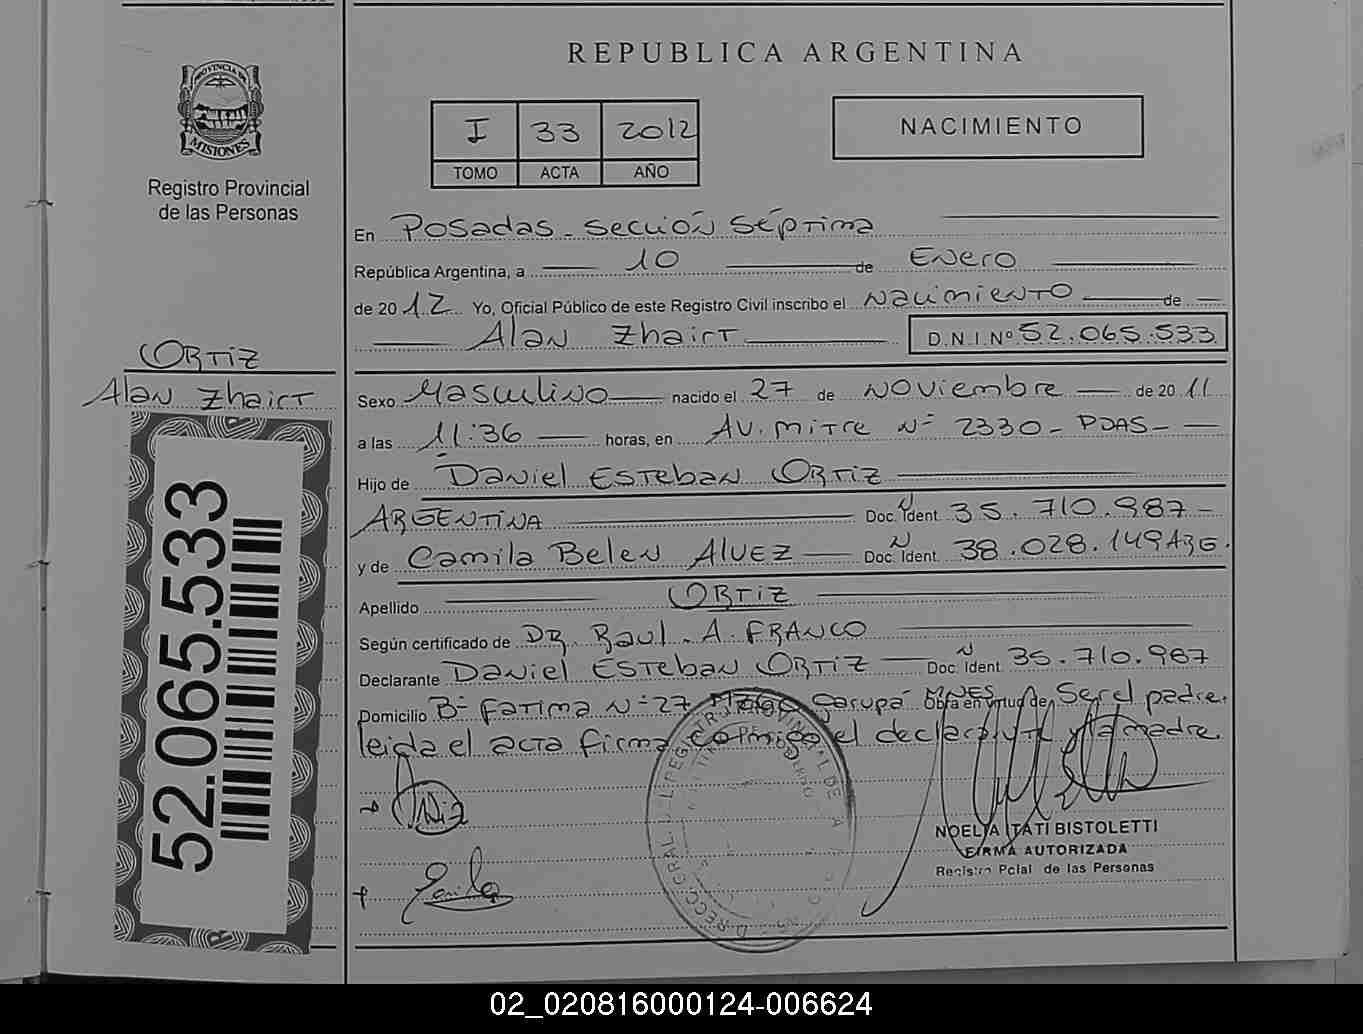 REPUBLICA ARGENTINA
PROVINCIA DE
MISIONES
Registro Provincial
de las Personas
I 33 2012
TOMO ACTA AÑO
NACIMIENTO
En Posadas - Sección Séptima
República Argentina, a 10 de Enero
de 2012 Yo, Oficial Público de este Registro Civil inscribo el Nacimiento de
Alan Zhairt D.N.I.Nº 52.065.533
ORTIZ
Alan Zhairt
52.065.533
Sexo Masculino nacido el 27 de Noviembre de 2011
a las 11:36 horas, en AV. Mitre Nº 2330 - PDAS -
Hijo de Daniel Esteban ORTIZ
ARGENTINA Doc. Ident. 35.710.987 -
y de Camila Belen ALVEZ Doc. Ident. 38.028.149 ARG.
Apellido ORTIZ
Según certificado de DR. Raul. A. FRANCO
Declarante Daniel Esteban ORTIZ Doc. Ident. 35.710.987
Domicilio Bº Fatima Nº 27 Garupá MNES Obra en virtud de Ser el padre.
leida el acta firma conmigo el declarante y la madre.
NOELIA ITATI BISTOLETTI
FIRMA AUTORIZADA
Registro Pcial de las Personas
02_020816000124-006624